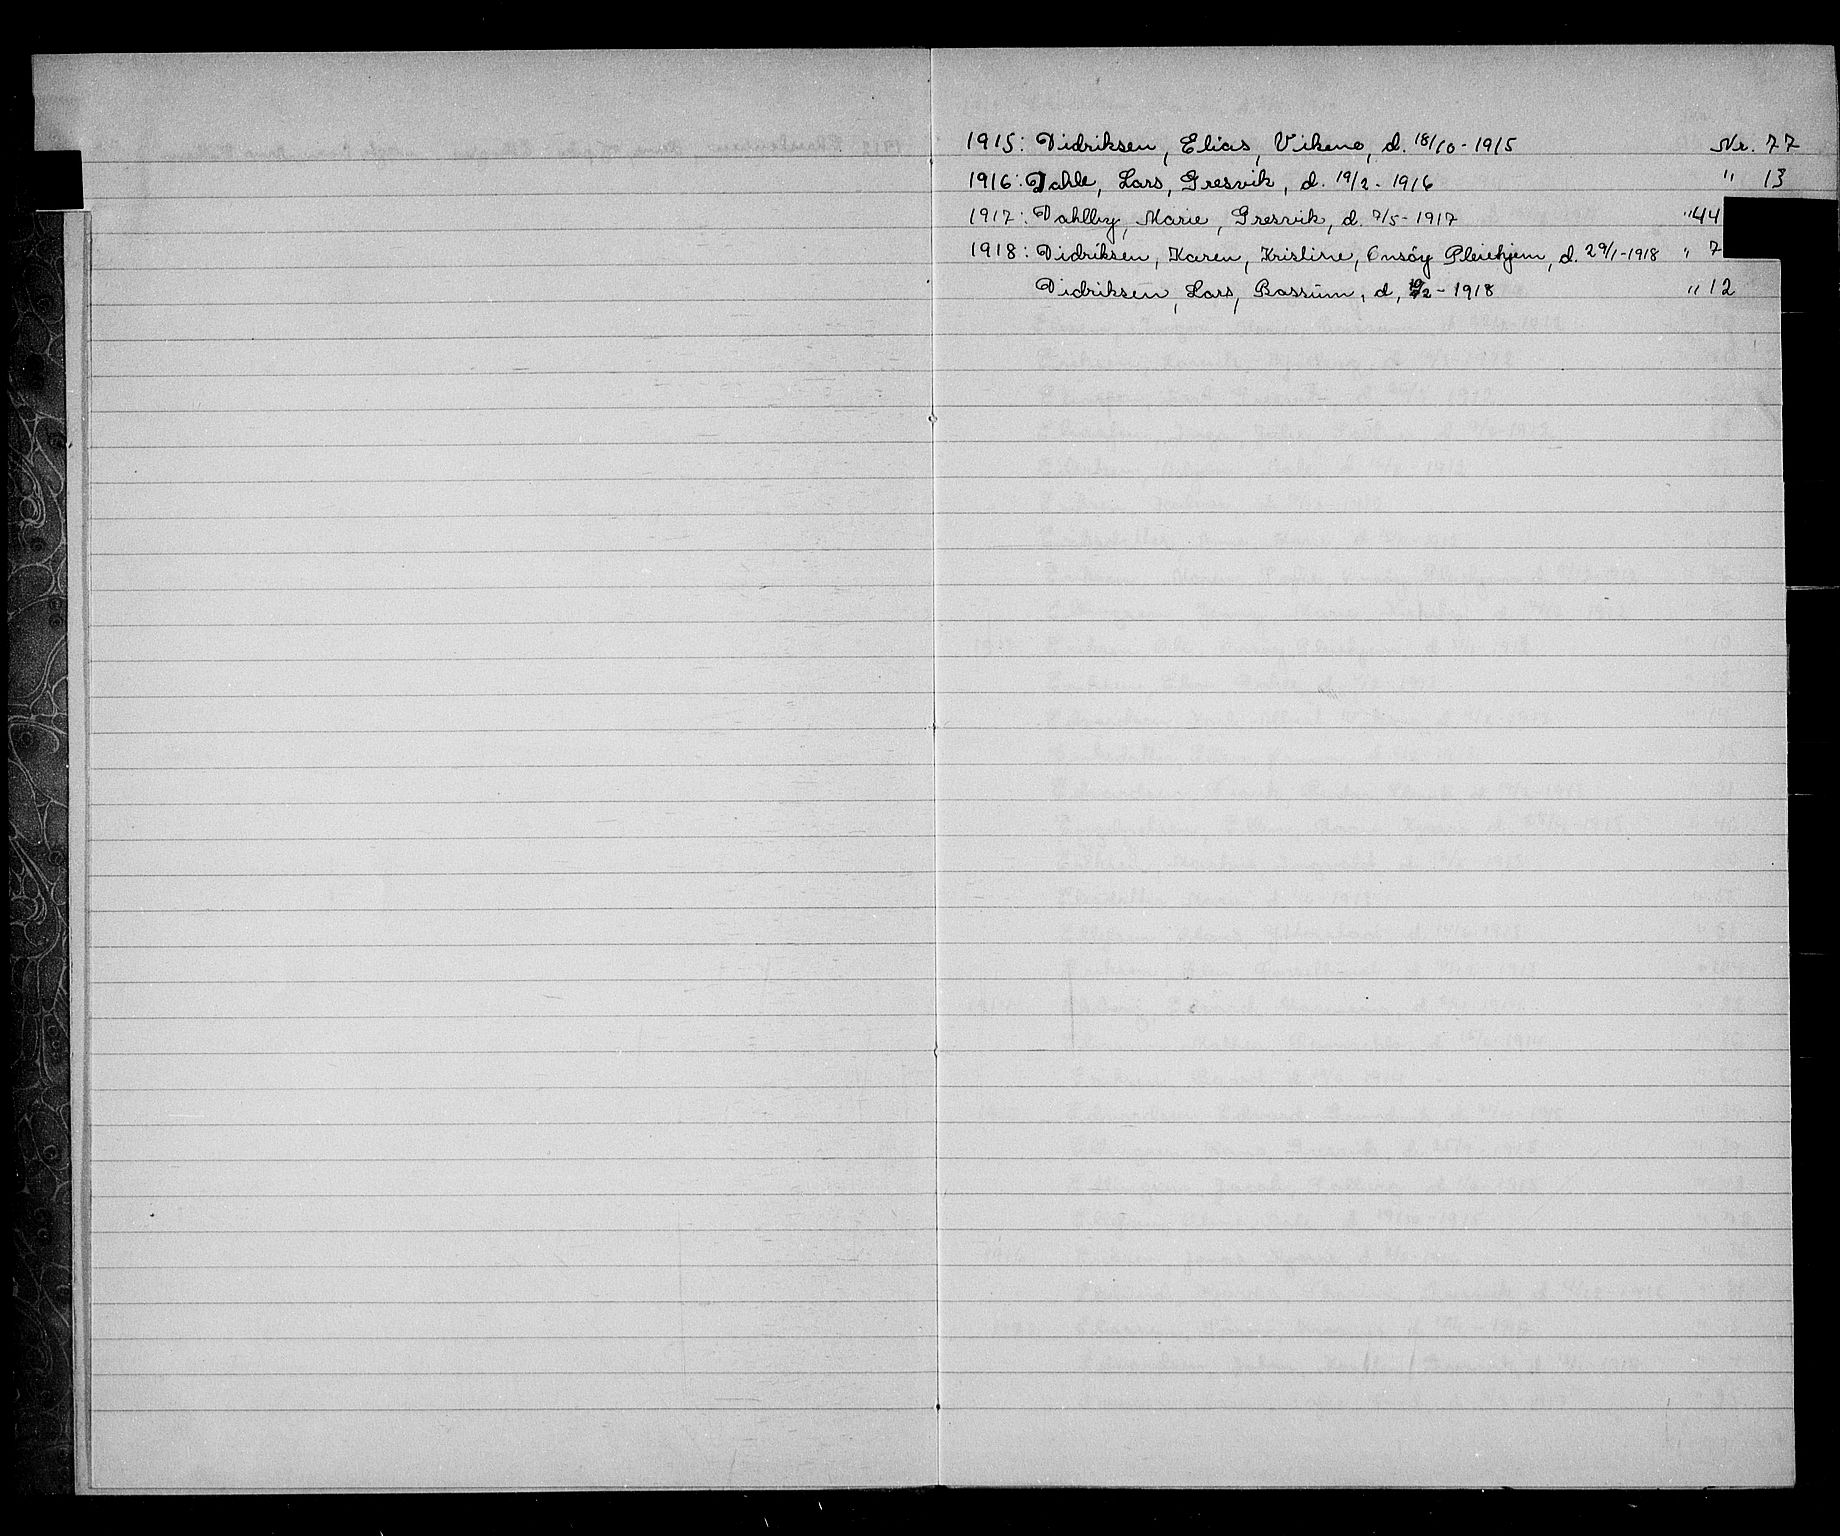 1915: Didriksen, Elias, Vikene, d. 18/10 - 1915 Nr. 77
1916: Dahle, Lars, Gresvik, d. 19/2 - 1916 " 13
1917: Dahlby, Marie, Gresvik, d. 7/5 - 1917 " 44
1918: Didriksen, Karen, Kristine, Onsöy Pleiehjem, d. 29/1 - 1918 " 7
Didriksen, Lars, Bossum, d, /2 - 1918 " 12